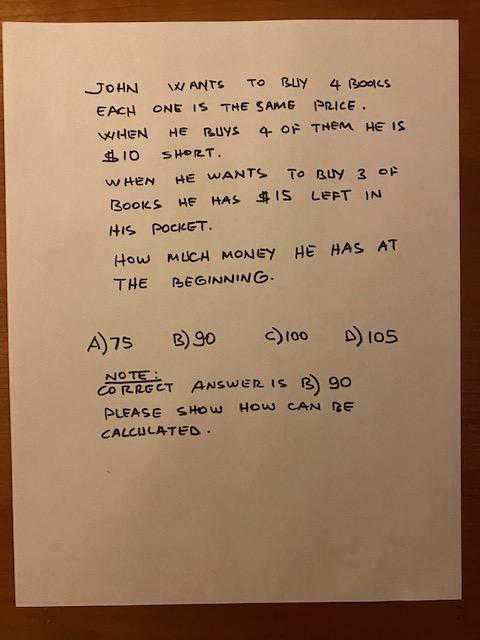 JOHN WANTS TO BUY 4 BOOKS
EACH ONE IS THE SAME PRICE.
WHEN HE BUYS 4 OF THEM HE IS
$10 SHORT.
WHEN HE WANTS TO BUY 3 OF
BOOKS HE HAS $15 LEFT IN
HIS POCKET.
HOW MUCH MONEY HE HAS AT
THE BEGINNING.
A) 75 B) 90 C) 100 D) 105
NOTE:
CORRECT ANSWER IS B) 90
PLEASE SHOW HOW CAN BE
CALCULATED.